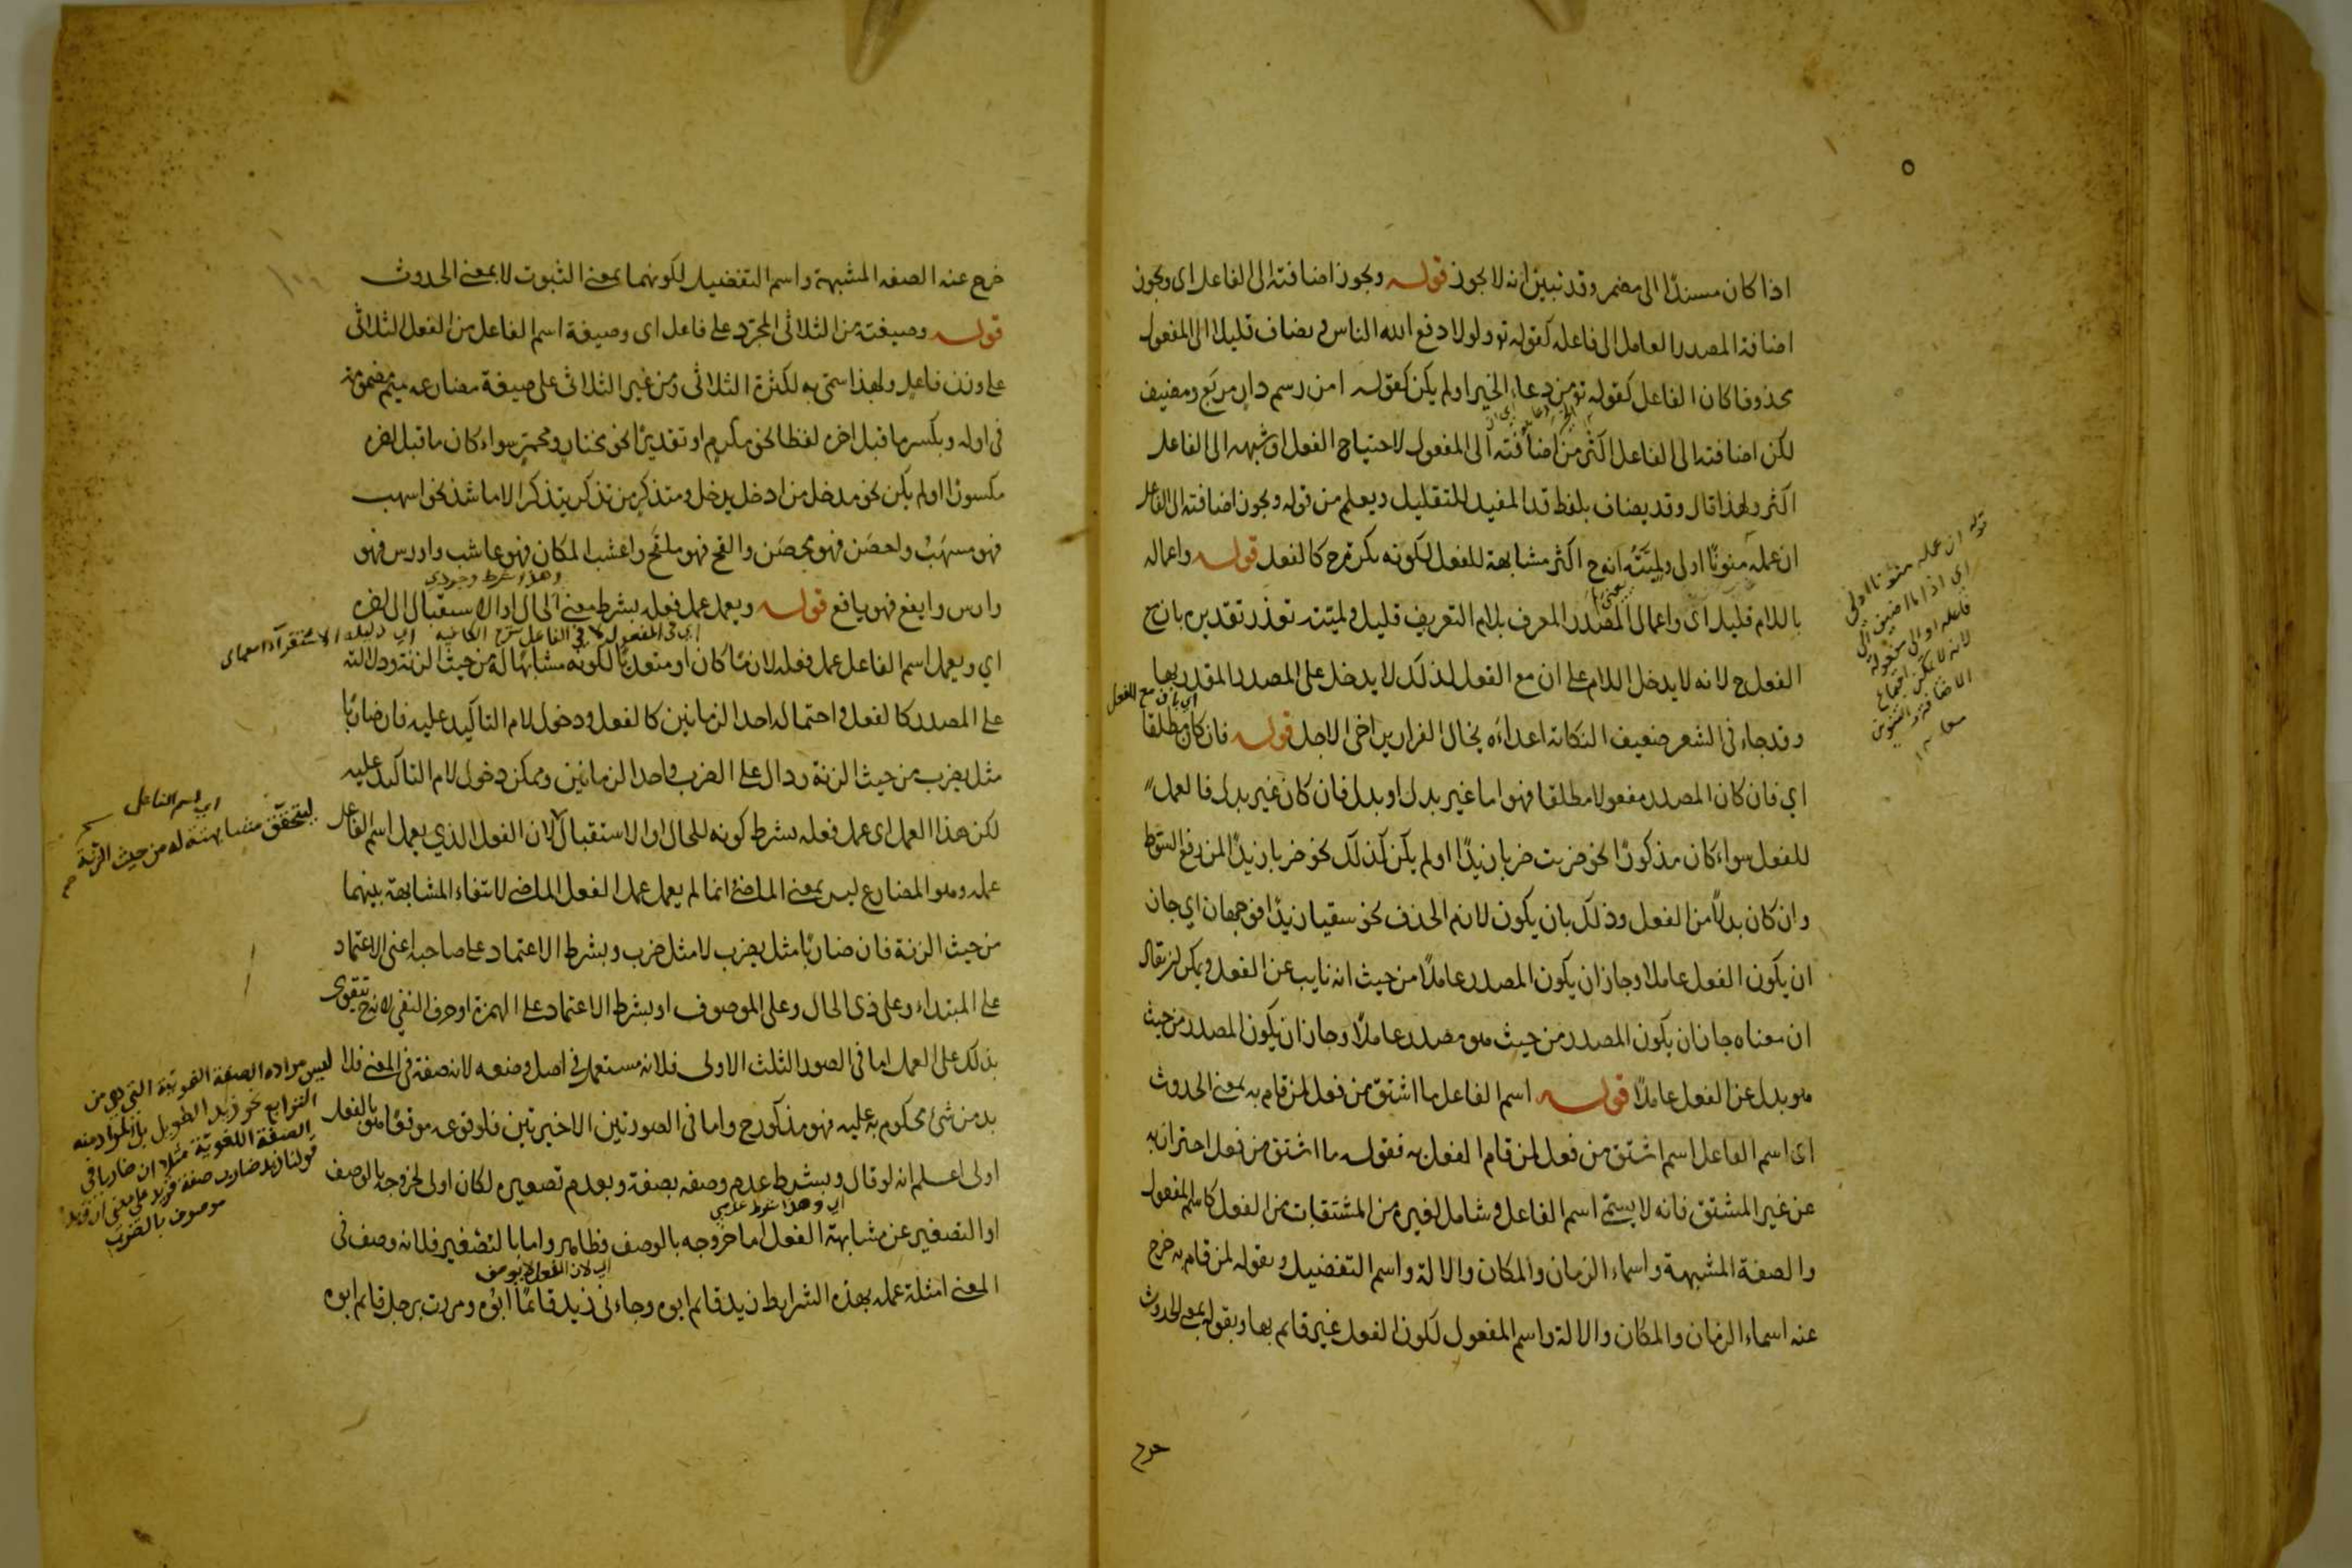 اذا كان مسندًا الى مضمر وقد تبين انه لا يجوز قوله ويجوز اضافته الى الفاعل اى ويجوز
اضافة المصدر العامل الى فاعله كقوله تع ولولا دفع الله الناس ويضاف قليلا الى المفعول
محذوفا كان الفاعل كقوله تع من دعاء الخير او لم يكن كقوله امن رسم دار مربع ومضيف
لكن اضافته الى الفاعل اكثر من اضافته الى المفعول لاحتياج الفعل او شبهه الى الفاعل
اكثر ولهذا قال وقد يضاف بلفظ قد المفيد للتقليل ويعلم من قوله ويجوز اضافته الى الفاعل
ان عمله منونًا اولى ولميته انه ح اكثر مشابهة للفعل لكونه نكرة ح كالفعل قوله واعماله
باللام قليل اى واعمال المصدر المعرف بلام التعريف قليل ولميته تعذر تقديره بان ح
الفعل ح لانه لا يدخل اللام على ان مع الفعل لذلك لا يدخل على المصدر المقدر بها
اي بان مع الفعل
وقد جاء فى الشعر ضعيف النكاية اعداءه يخال الفرار يراخى الاجل قوله فان كان مطلقا
اي فان كان المصدر مفعولا مطلقا فهو اما غير بدل او بدل فان كان غير بدل فالعمل
للفعل سواء كان مذكورًا نحو ضربت ضربا زيدًا او لم يكن كذلك نحو ضربا زيدًا لمن رفع السوط
وان كان بدلًا من الفعل وذلك بان يكون لازم الحذف نحو سقيا زيدًا فوجهان اي جاز
ان يكون الفعل عاملا وجاز ان يكون المصدر عاملًا من حيث انه نايب عن الفعل ويمكن ان يقال
ان معناه جاز ان يكون المصدر من حيث هو مصدر عاملًا وجاز ان يكون المصدر من حيث
هو بدل عن الفعل عاملًا قوله اسم الفاعل ما اشتق من فعل لمن قام به بمعنى الحدوث
اى اسم الفاعل اسم اشتق من فعل لمن قام الفعل به فقوله ما اشتق من فعل احتراز به
عن غير المشتق فانه لا يسمى اسم الفاعل وشامل لغيره من المشتقات من الفعل كاسم المفعول
والصفة المشبهة واسماء الزمان والمكان والالة واسم التفضيل وبقوله لمن قام به خرج
عنه اسماء الزمان والمكان والالة واسم المفعول لكون الفعل غير قائم بها وبقوله بمعنى الحدوث
خرج
قوله ان عمله منونا اولى
اى اذا ما اضيف الى
فاعله او الى مفعوله
لانه لا يمكن اجتماع
الاضافة والتنوين
خرج عنه الصفه المشبهة واسم التفضيل لكونهما بمعنى الثبوت لا بمعنى الحدوث
قوله وصيغته من الثلاثى المجرد على فاعل اى وصيغة اسم الفاعل من الفعل الثلاثى
على وزن فاعل ولهذا سمى به لكثرة الثلاثى ومن غير الثلاثى على صيغة مضارعه بميم مضمومة
فى اوله وبكسر ما قبل اخره لفظا نحو مكرم او تقديرًا نحو مختار ومحمر سواء كان ما قبل اخره
مكسورًا او لم يكن نحو مدخل من ادخل يدخل ومتذكر من تذكر يتذكر الا ما شذ نحو اسهب
فهو مسهب واحصن فهو محصن والقح فهو ملقح واعشب المكان فهو عاشب واورس فهو
وهذا شرط وجودي
وارس وايفع فهو يافع قوله ويعمل عمل فعله بشرط معنى الحال او الاستقبال الى اخره
اي فى المفعول لا فى الفاعل شرح الكافيه
اي ويعمل اسم الفاعل عمل فعله لازمًا كان او متعديًا لكونه مشابهًا له من حيث الزنة ودلالته
على المصدر كالفعل واحتماله احد الزمانين كالفعل ودخول لام التاكيد عليه فان ضاربًا
مثل يضرب من حيث الزنة ودال على الضرب واحد الزمانين ويمكن دخول لام التاكيد عليه
لكن هذا العمل اى عمل فعله بشرط كونه للحال او الاستقبال لان الفعل الذي يعمل اسم الفاعل
عمله وهو المضارع ليس بمعنى الماضى انما لم يعمل عمل الفعل الماضى لانتفاء المشابهة بينهما
من حيث الزنة فان ضاربًا مثل يضرب لا مثل ضرب وبشرط الاعتماد على صاحبه اعنى الاعتماد
على المبتداء وعلى ذى الحال وعلى الموصوف او بشرط الاعتماد على الهمزة او حرف النفى لانه ح يتقوى
بذلك على العمل اما فى الصور الثلث الاولى فلانه مستعمل فى اصل وضعه لانه صفة فى المعنى فلا
بد من شئ محكوم به عليه فهو مذكور ح واما فى الصورتين الاخيرتين فلوقوعه موقعًا هو بالفعل
اولى اعلم انه لو قال وبشرط عدم وصفه بصفة وبعدم تصغيره لكان اولى لخروجه بالوصف
اي وهذا شرط عدمي
او التصغير عن مشابهة الفعل اما خروجه بالوصف فظاهر واما بالتصغير فلانه وصف فى
اي لان الفعل لا يوصف
المعنى امثلة عمله بهذه الشرايط زيد قائم ابوه وجاءنى زيد قائمًا ابوه ومررت برجل قائم ابوه
اي اسم الفاعل
ليتحقق مشابهته له من حيث الزنة
ليس مراده الصفة النحوية التي هي من
التوابع نحو زيد الطويل بل المراد منه
الصفة اللغوية مثلا ان ضاربا فى
قولنا زيد ضارب صفة لزيد على معنى ان زيدا
موصوف بالضرب